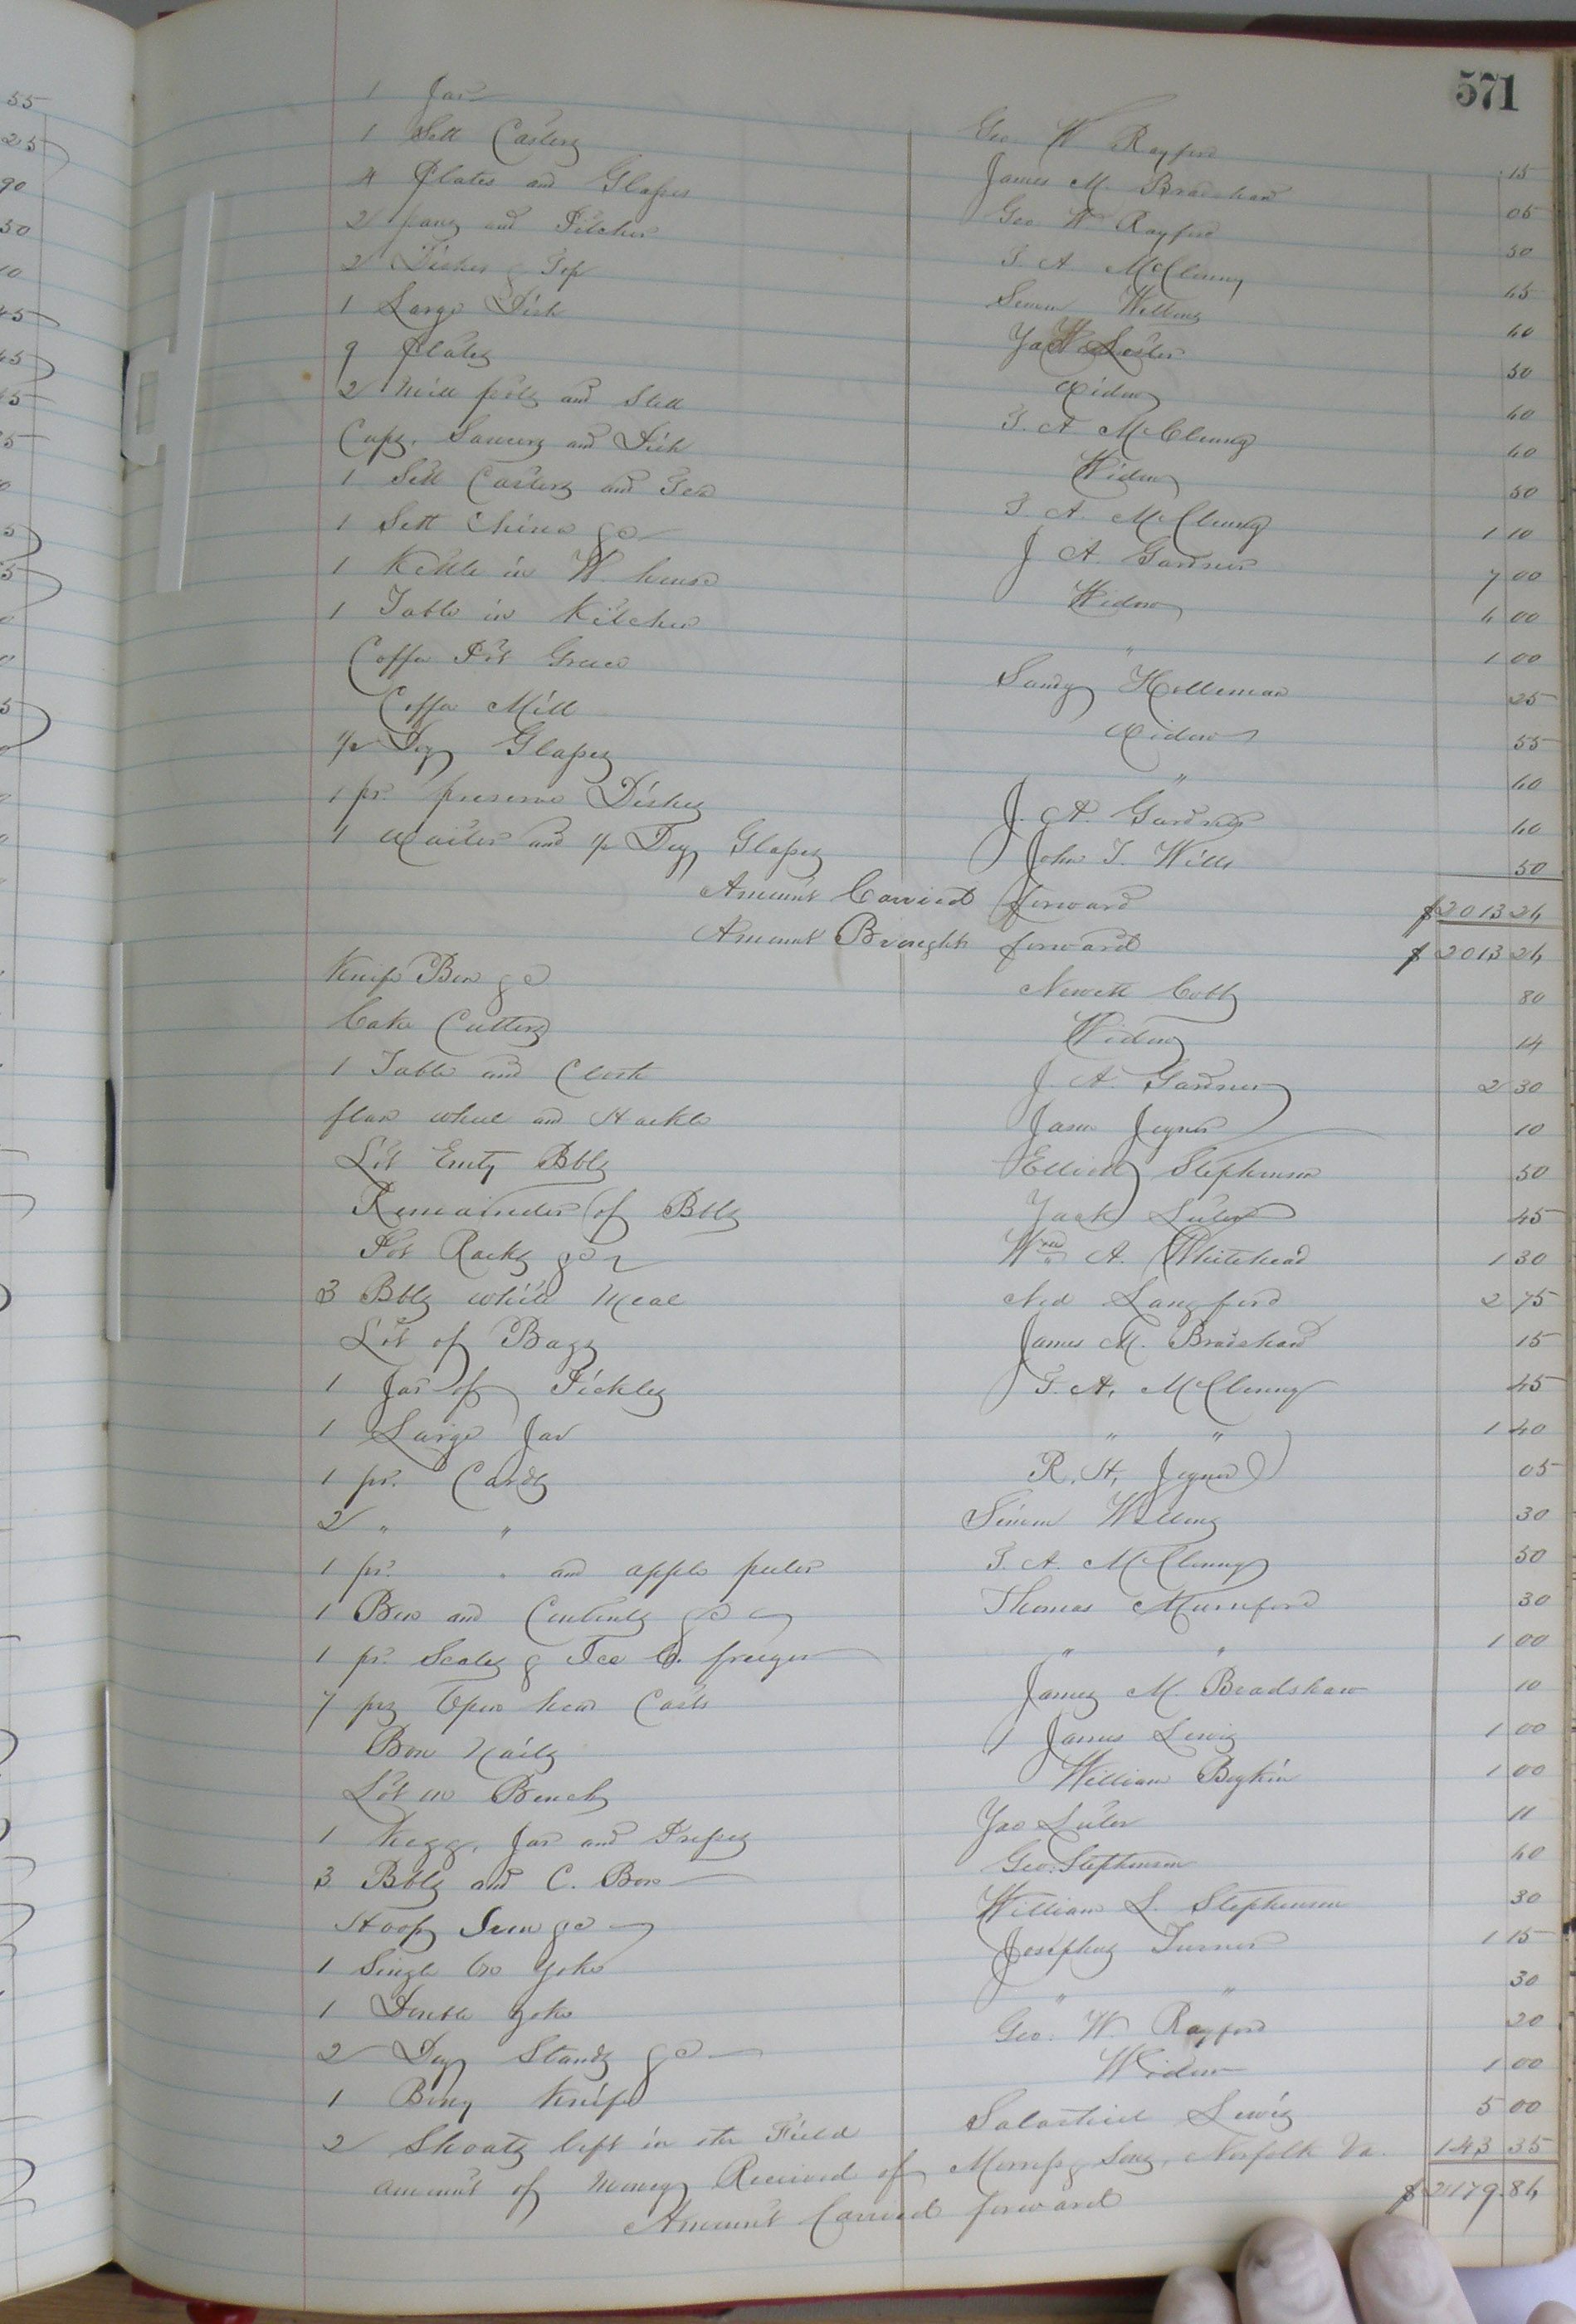 571
1 Jar Geo. W. Rayford .15
1 Sett Casters James M. Bradshaw 05
4 Plates and Glasses Geo. W. Rayford 50
2 pans and Pitcher T. A. McClenny 45
2 Dishes & Top Simon Willing 40
1 Large Dish Jack Luter 50
9 Plates Widow 40
2 Milk pots and Stell T. A. McClenny 40
Cups, Saucers and Dish Widow 50
1 Sett Casters and Tea T. A. McClenny 1 10
1 Sett China &c J. A. Gardner 7 00
1 Kettle in W. house Widow 4 00
1 Table in Kitchen " 1 00
Coffe Pot Sandy Holleman 25
Coffe Mill Widow 55
½ Doz Glasses " 40
1 pr. preserve Dishes J. A. Gardner 40
1 Waiter and ½ Doz Glasses John T. Wills 50
Amount Carried forward $2013 24
Amount Brought forward $2013 24
Knife Box &c Newitt Cobb 80
Cake Cutters Widow 14
1 Table and Cloth J. A. Gardner 2 30
flax wheel and Hackle Jason Joyner 10
Lot Emty Bbls Elliott Stephenson 50
Remainder of Bbls Jack Luter 45
Pot Racks &c Wm A. Whitehead 1 30
3 Bbls white Meal Ned Langford 2 75
Lot of Bags James M. Bradshaw 15
1 Jar of Pickles T. A. McClenny 45
1 Large Jar " " 1 40
1 pr. Cards R. H. Joyner 05
2 " " Simon Willing 30
1 pr. " and apple peeler T. A. McClenny 50
1 Box and Contents &c Thomas Mumford 30
1 pr. Scales & Ice C. freezer " " 1 00
7 prs Open hear Cards James M. Bradshaw 10
Box Nails James Lewis 1 00
Lot on Bench William Boykin 1 00
1 Kegg, Jar and Presses Jac Luter 11
3 Bbls and C. Box Geo. Stephenson 40
Hoop Iron &c William L. Stephenson 30
1 Single Ox Yoke Josephus Turner 1 15
1 Double Yoke " " 30
2 Doz Stands &c Geo. W. Rayford 20
1 Boxy Knife Widow 1 00
2 Shoats left in the Field Salathiel Lewis 5 00
amount of money Received of & Sons, Norfolk Va. 143 35
Amount Carried forward $2179.84